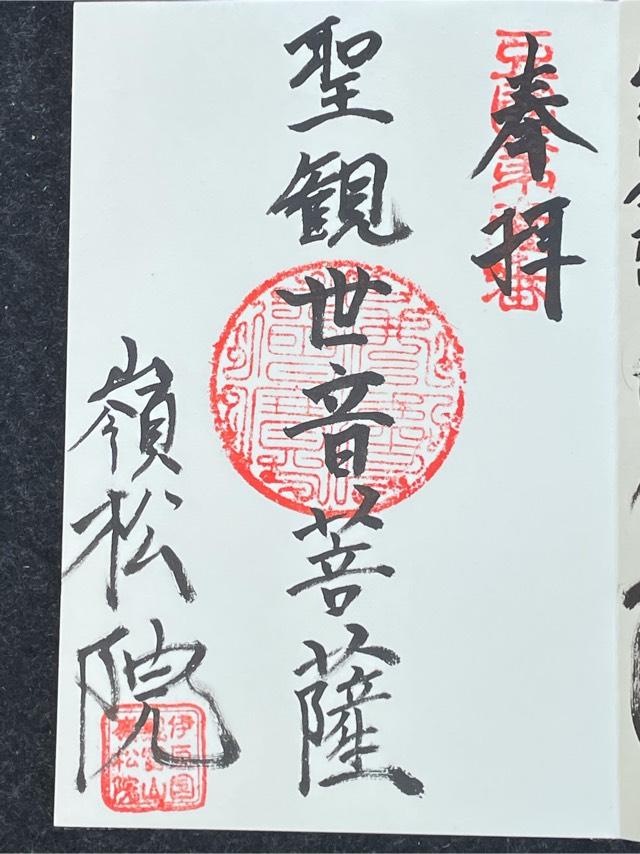 奉拝
聖観世音菩薩
嶺松院
伊豆国
山
嶺松院